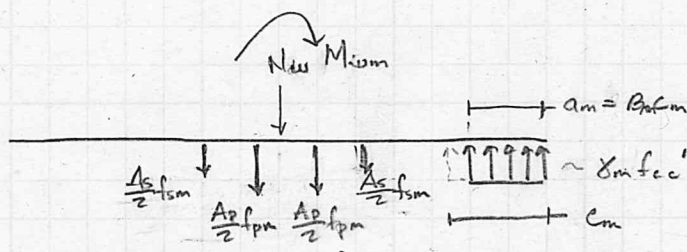 Nw Mium
am = Bm cm
As/2 fsm
Ap/2 fpm
Ap/2 fpm
As/2 fsm
~ γm fcc'
cm